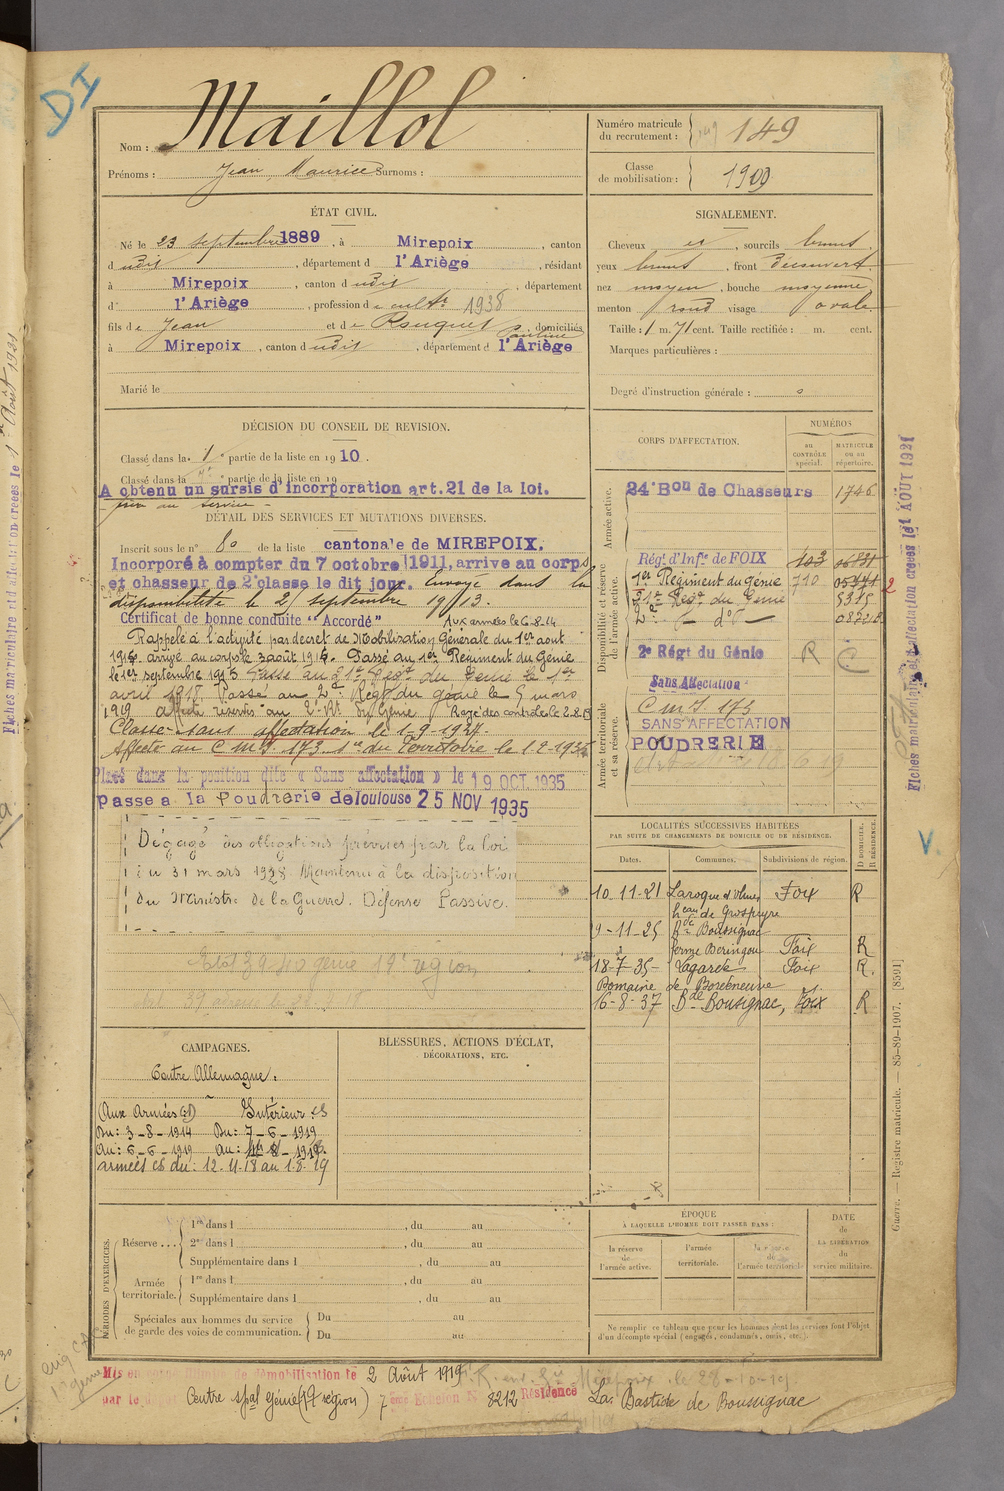 DI
Nom : Maillol
Prénoms : Jean Maurice Surnoms :
Numéro matricule du recrutement : 149
Classe de mobilisation : 1909
ÉTAT CIVIL.
Né le 23 septembre 1889, à Mirepoix, canton
d udit, département d l'Ariège, résidant
à Mirepoix, canton d udit, département
d' l'Ariège, profession de cultr 1938
fils de Jean et de Rouquet Pauline, domiciliés
à Mirepoix, canton d udit, département d l'Ariège
Marié le
SIGNALEMENT.
Cheveux et, sourcils bruns.
yeux bruns, front découvert
nez moyen, bouche moyenne
menton rond visage ovale.
Taille : 1 m. 71 cent. Taille rectifiée : m. cent.
Marques particulières :
Degré d'instruction générale :
DÉCISION DU CONSEIL DE REVISION.
Classé dans la 1e partie de la liste en 1910.
Classé dans la partie de la liste en 19
A obtenu un sursis d'incorporation art. 21 de la loi.
au service
DÉTAIL DES SERVICES ET MUTATIONS DIVERSES.
Inscrit sous le n° 80 de la liste cantonale de MIREPOIX.
Incorporé à compter du 7 octobre 1911, arrive au corps
et chasseur de 2e classe le dit jour. Envoyé dans la
disponibilité le 27 septembre 1913.
Certificat de bonne conduite "Accordé" Aux armées le 6-8-14
Rappelé à l'activité par decret de Mobilisation Générale du 1er aout
1914. arrivé au corps le 3 août 1914. Passé au 1er Régiment du Génie
le 1er septembre 1915 Passé au 21e Régt du Génie le 1er
avril 1918. Passé au 2e Régt du génie le 5 mars
1919 affecté réserves au 2e Rt du Génie Rayé des contrôles le 2-8-19
Classé sans affectation le 1-9-1924.
Affecté au C M I 173 1re du Territoire le 1 2-1934
Placé dans la position dite « Sans affectation » le 19 OCT. 1935
Passé à la Poudrerie de Toulouse 25 NOV 1935
Dégagé des obligations prévues par la loi
du 31 mars 1928. Maintenu à la disposition
du Ministre de la Guerre. Défense Passive.
Etat 39-40 génie 19e région
CORPS D'AFFECTATION.
NUMÉROS
au CONTRÔLE spécial.
MATRICULE ou au répertoire.
Armée active.
24e Bon de Chasseurs 1746
Disponibilité et réserve de l'armée active.
Régt d'Infie de FOIX 103
1er Régiment du génie 710
21e Régt du Génie 5315
2e - do -
2e Régt du Génie R C
Armée territoriale et sa réserve.
Sans Affectation
C M I 173
SANS AFFECTATION
POUDRERIE
LOCALITÉS SUCCESSIVES HABITÉES
PAR SUITE DE CHANGEMENTS DE DOMICILE OU DE RÉSIDENCE.
Dates. Communes. Subdivisions de région. D DOMICILE. R RÉSIDENCE.
10-11-21 Laroque d'Olmes Foix R
heau de Grospeyre
9-11-25 Bde Boussignac
ferme Beringou Foix R
18-7-35- Lagarde Foix R.
Domaine de
16-8-37 Bde Bousignac, Foix R
CAMPAGNES.
Contre Allemagne.
Aux Armées Intérieur CS
Du : 3-8-1914 Du : 7-6-1919
Au : 6-6-1919 au :
armées CS du : 12-11-18 au 1-8-19
BLESSURES, ACTIONS D'ÉCLAT,
DÉCORATIONS, ETC.
PÉRIODES D'EXERCICES.
Réserve ...
1re dans l , du au
2e dans l , du au
Supplémentaire dans l , du au
Armée territoriale.
1re dans l , du au
Supplémentaire dans l , du au
Spéciales aux hommes du service de garde des voies de communication.
Du au
Du au
ÉPOQUE
À LAQUELLE L'HOMME DOIT PASSER DANS :
la réserve de l'armée active.
l'armée territoriale.
la réserve de l'armée territoriale.
DATE DE LA LIBÉRATION du service militaire.
Ne remplir ce tableau que pour les hommes dont les services font l'objet
d'un décompte spécial (engagés, condamnés, omis, etc.).
Mis en de démobilisation le 2 Août 1919
par le Centre spal Génie (17 région) 7 ème Echelon N° 8212 Résidence La Bastide de Boussignac
Fiches matriculaire et d'affectation créées le 1er AOUT 1921
Guerre. — Registre matricule. — 85-89-1907. [8591]
V.
Fiches matriculaire et d'affectation créées le 1er Août 1921